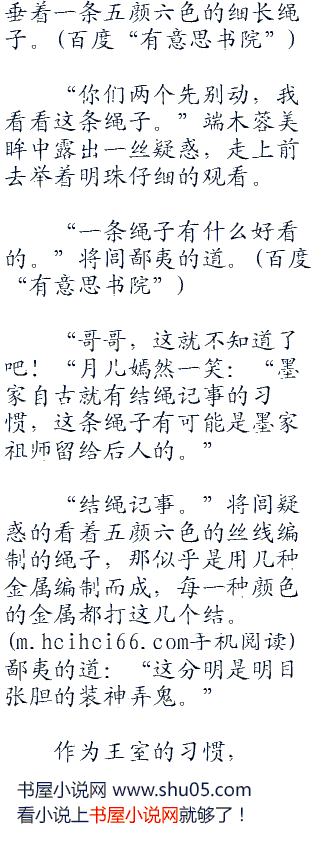 垂着一条五颜六色的细长绳
子。(百度“有意思书院”)
“你们两个先别动，我
看看这条绳子。”端木蓉美
眸中露出一丝疑惑，走上前
去举着明珠仔细的观看。
“一条绳子有什么好看
的。”将闾鄙夷的道。(百度
“有意思书院”)
“哥哥，这就不知道了
吧！“月儿嫣然一笑：“墨
家自古就有结绳记事的习
惯，这条绳子有可能是墨家
祖师留给后人的。”
“结绳记事。”将闾疑
惑的看着五颜六色的丝线编
制的绳子，那似乎是用几种
金属编制而成，每一种颜色
的金属都打这几个结。
(m.hcihci66.com手机阅读)
鄙夷的道：“这分明是明目
张胆的装神弄鬼。”
作为王室的习惯，
书屋小说网 www.shu05.com
看小说上书屋小说网就够了！